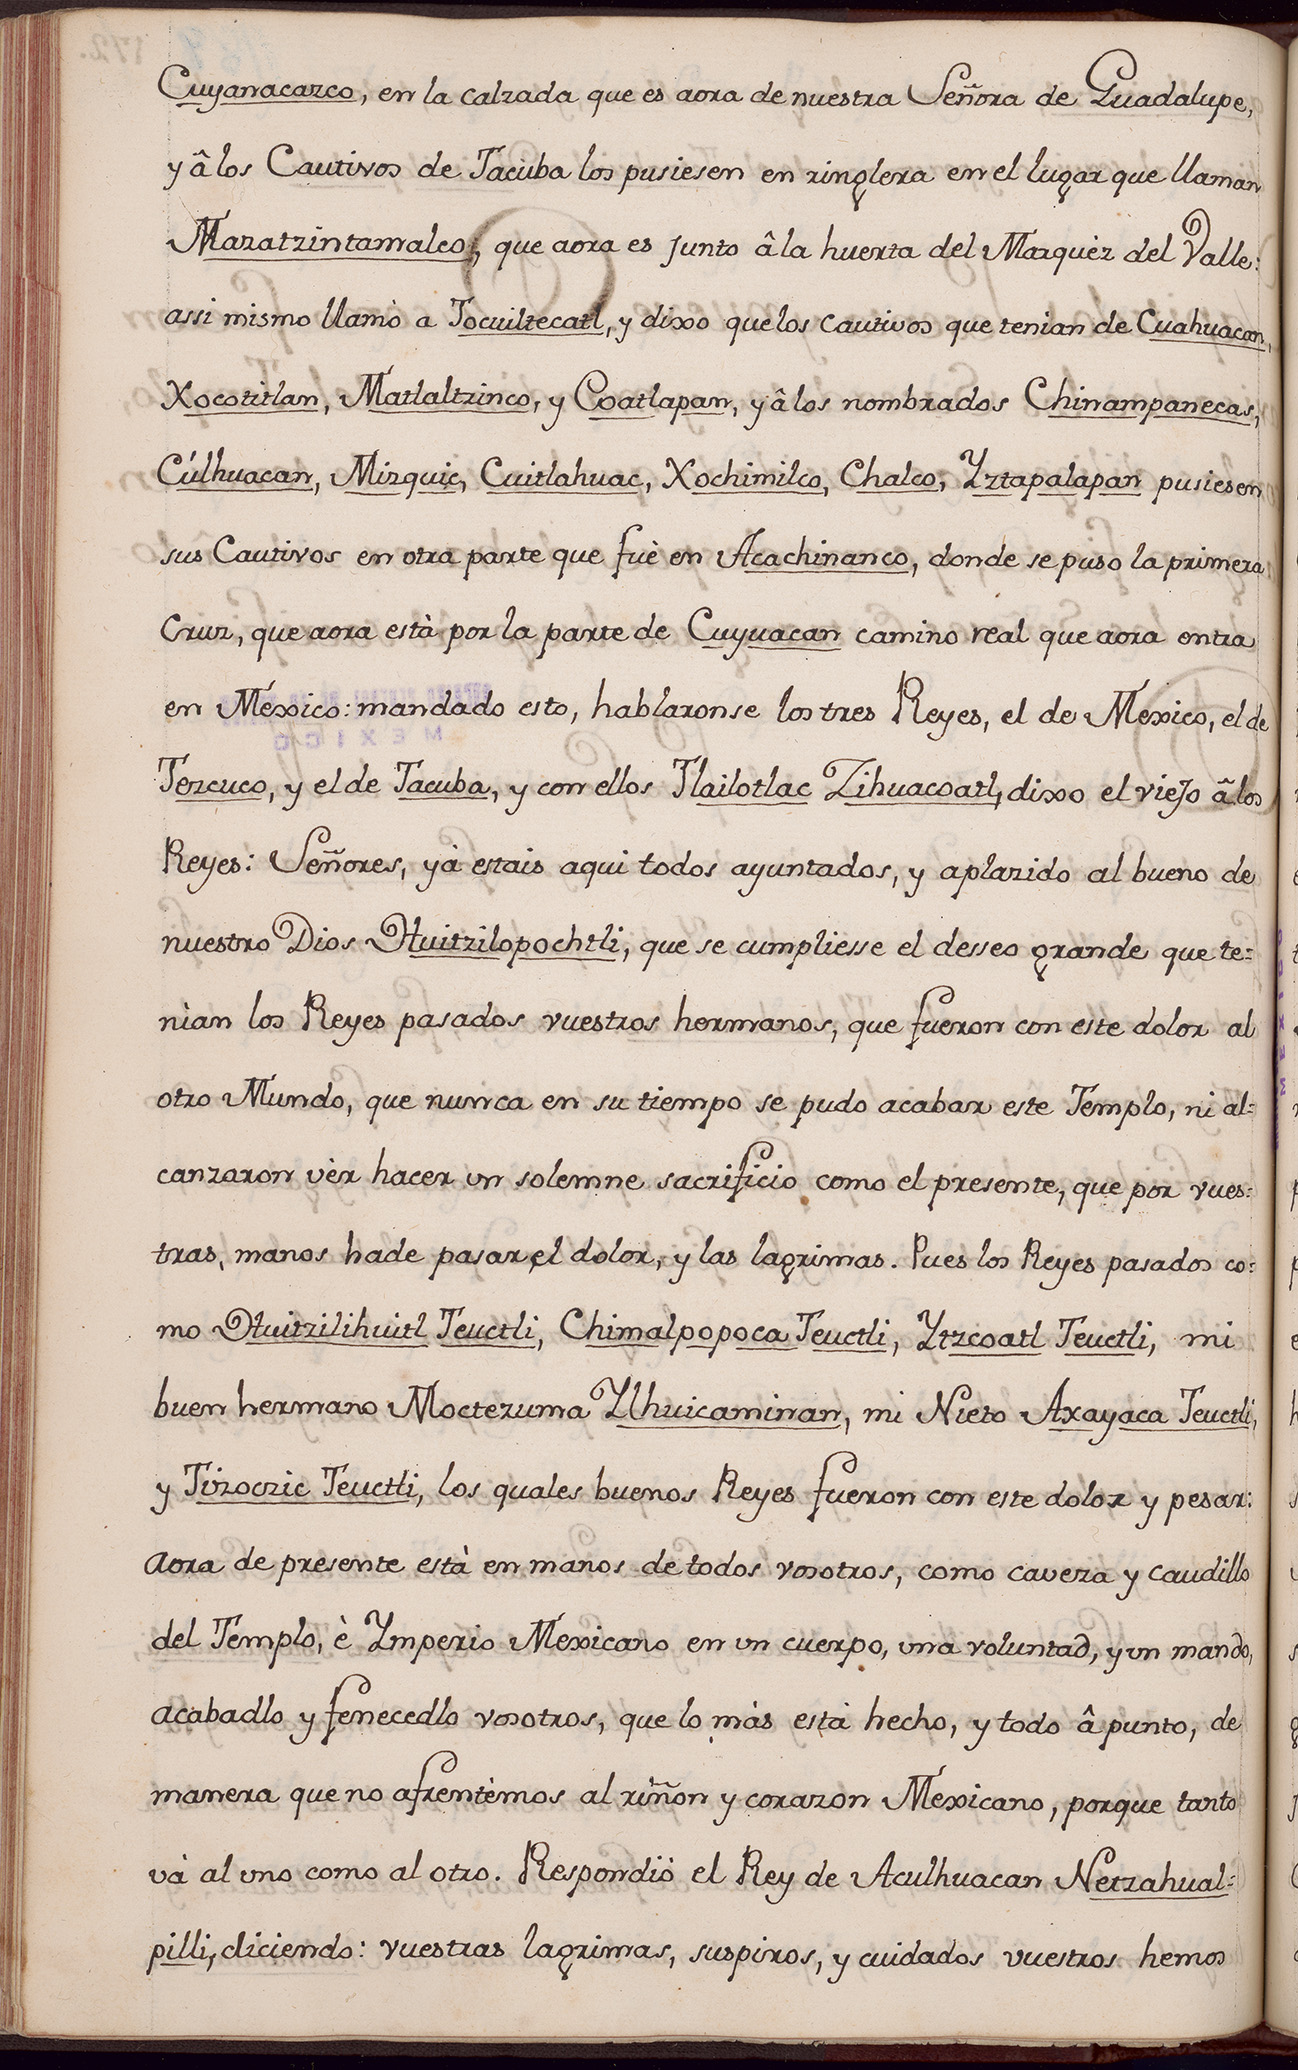 Cuyanacazco, en la calzada que es aora de nuestra Señora de Guadalupe,
y â los Cautivos de Tacuba los pusiesen en ringlera en el lugar que llaman
Mazatzintamalco, que aora es junto â la huerta del Marquèz del Valle:
assi mismo llamò a Tocuiltecatl, y dixo que los cautivos que tenian de Cuahuacan,
Xocotitlan, Matlaltzinco, y Coatlapan, y â los nombrados Chinampanecas,
Cúlhuacan, Mizquic, Cuitlahuac, Xochimilco, Chalco, Yztapalapan pusiesen
sus Cautivos en otra parte que fuè en Acachinanco, donde se puso la primera
Cruz, que aora està por la parte de Cuyuacan camino real que aora entra
en Mexico: mandado esto, hablaronse los tres Reyes, el de Mexico, el de
Tezcuco, y el de Tacuba, y con ellos Tlailotlac Zihuacoatl, dixo el viejo â los
Reyes: Señores, yà estais aqui todos ayuntados, y aplazido al bueno de
nuestro Dios Huitzilopochtli, que se cumpliesse el desseo grande que te=
nìan los Reyes pasados vuestros hermanos, que fueron con este dolor al
otro Mundo, que nunca en su tiempo se pudo acabar este Templo, ni al=
canzaron vèr hacer un solemne sacrificio como el presente, que por vues=
tras manos hade pasar el dolor, y las lagrimas. Pues los Reyes pasados co=
mo Huitzilihuitl Teuctli, Chimalpopoca Teuctli, Ytzcoatl Teuctli, mi
buen hermano Moctezuma Ylhuicaminan, mi Nieto Axayaca Teuctli,
y Tizoczic Teuctli, los quales buenos Reyes fueron con este dolor y pesar:
Aora de presente està en manos de todos vosotros, como caveza y caudillo
del Templo, è Ymperio Mexicano en un cuerpo, una voluntad, y un mando,
acabadlo y fenecedlo vosotros, que lo màs està hecho, y todo â punto, de
manera que no afrentèmos al riñon y corazon Mexicano, porque tanto
và al uno como al otro. Respondiò el Rey de Aculhuacan Netzahual=
pilli, diciendo: vuestras lagrimas, suspiros, y cuidados vuestros hemos